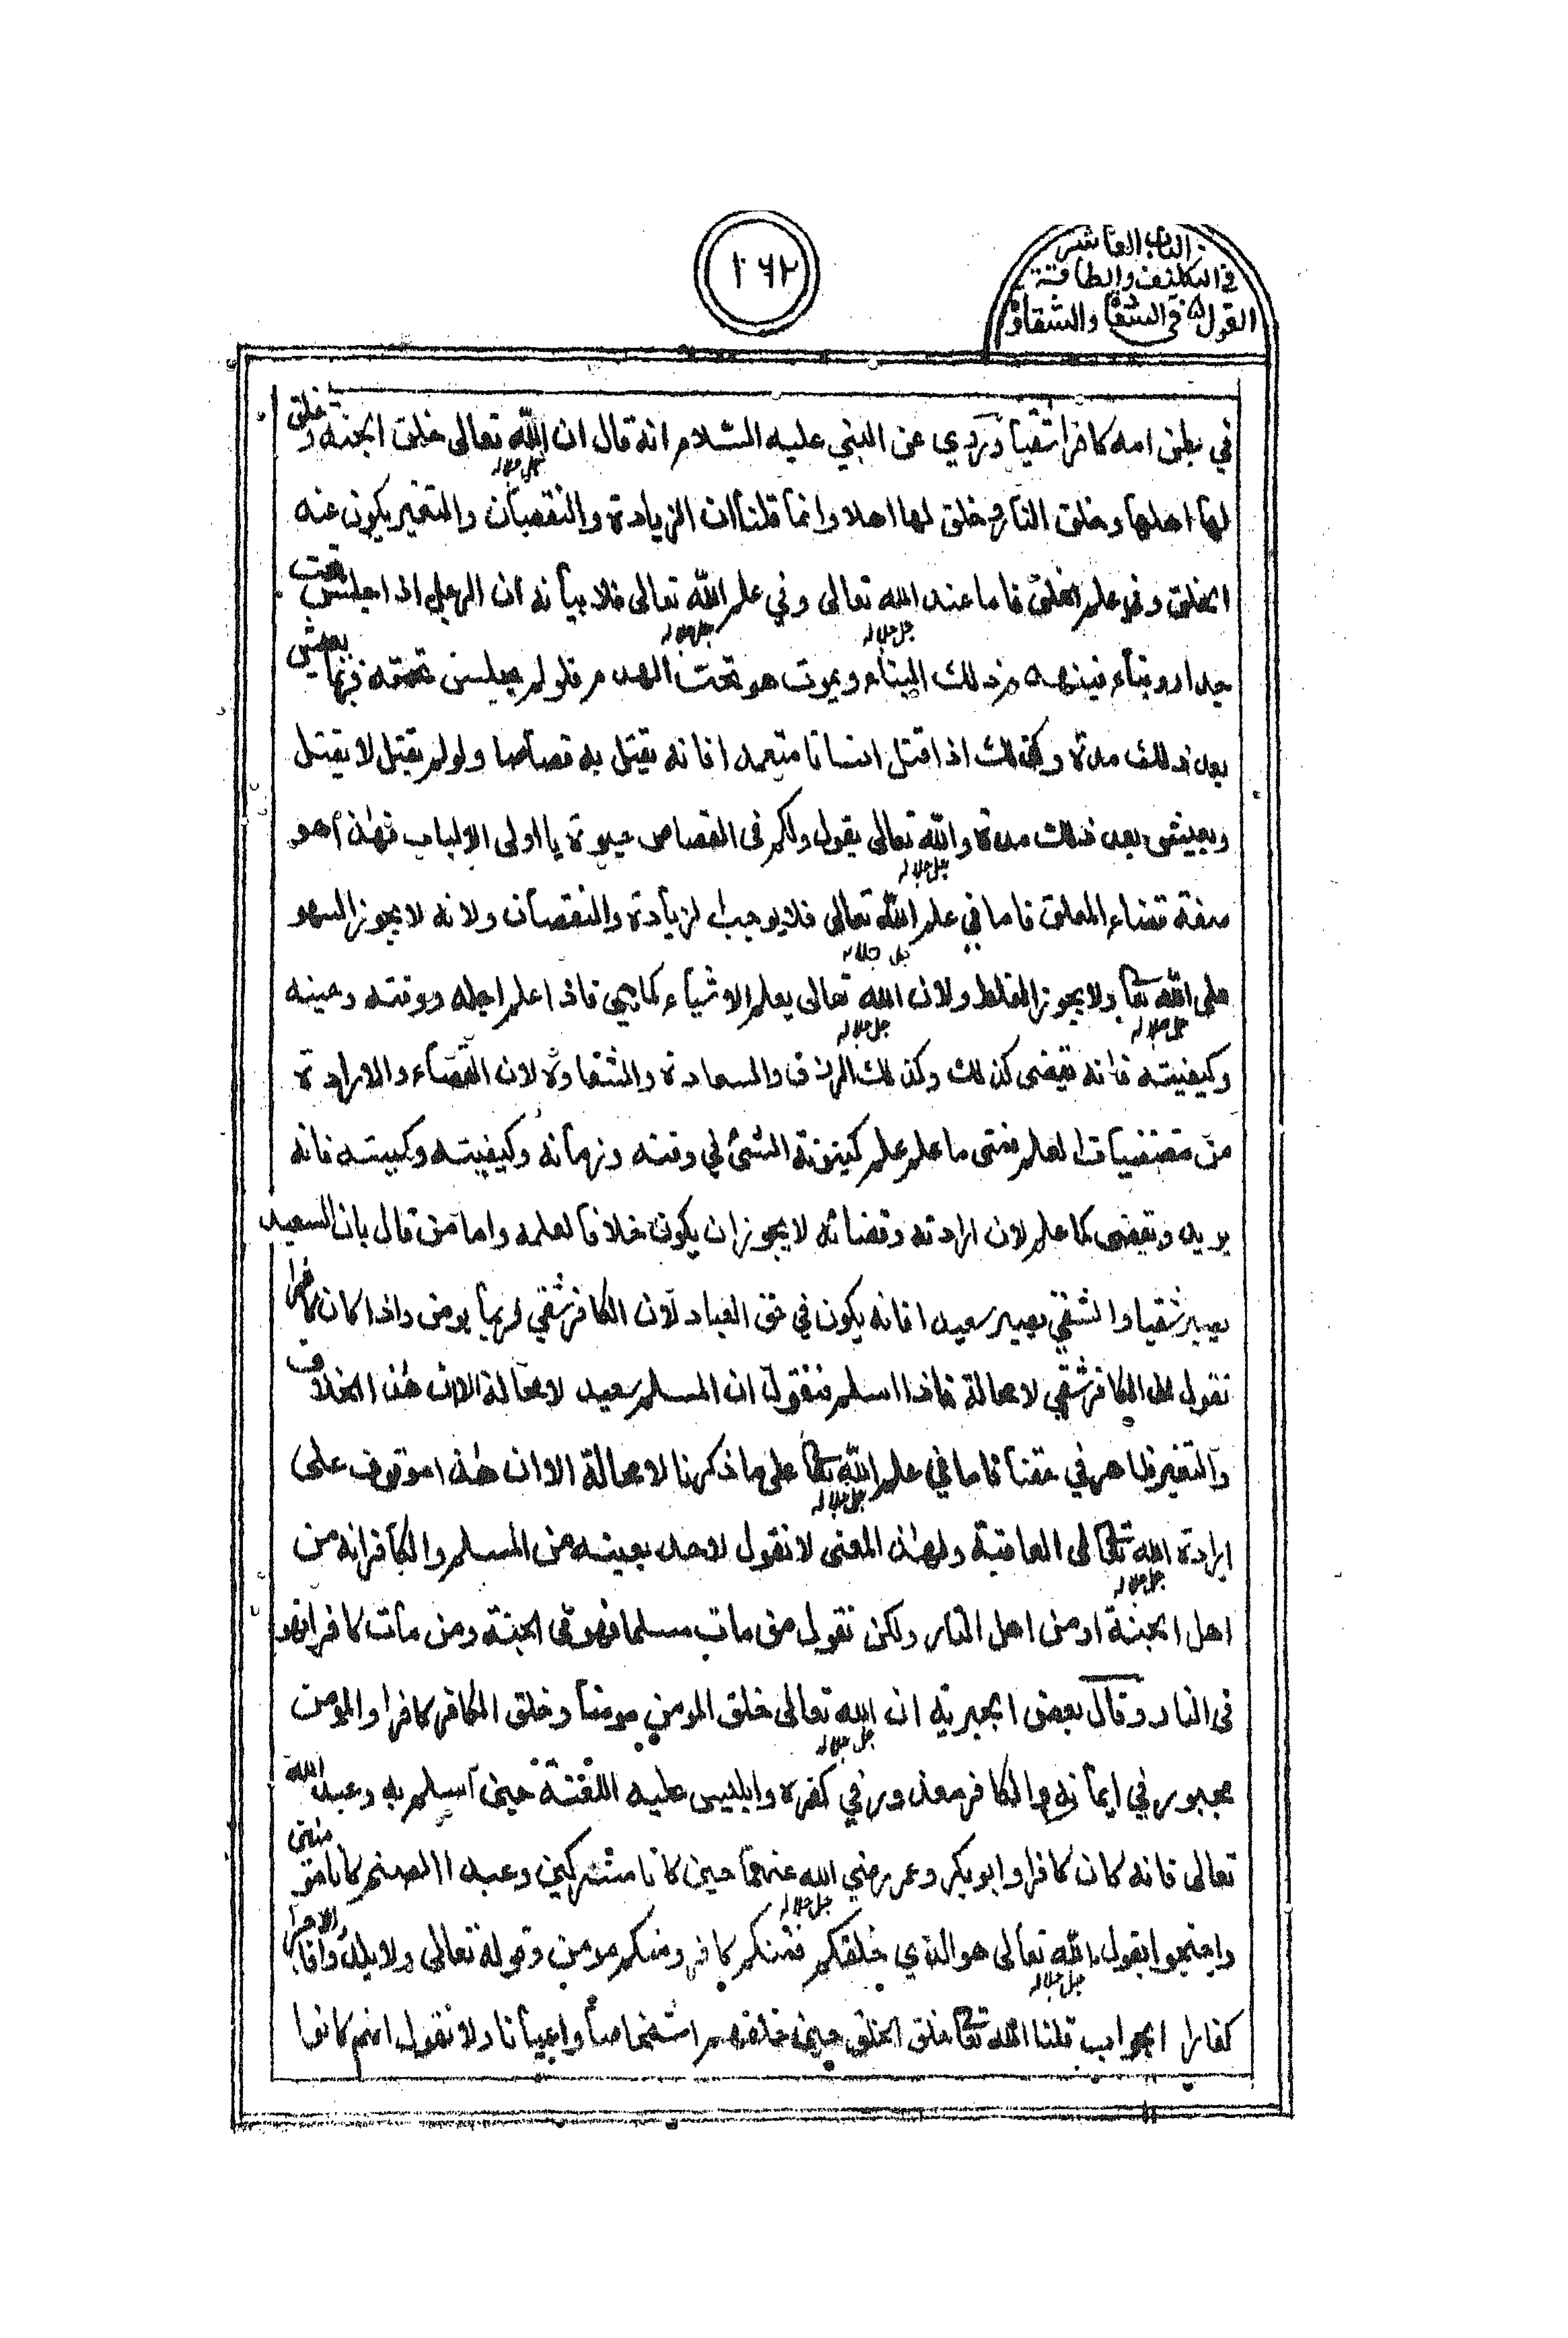 الباب العاشر
في التكليف والطاقة
القول في الشقا والشقاوة
٢٦٢
في بطن امه كافرا شقيا وروي عن النبي عليه السلام انه قال ان الله تعالى خلق الجنة وخلق
جل جلاله
لها اهلها وخلق النار وخلق لها اهلا وانما قلنا ان الزيادة والنقصان والتغير يكون عنه
الخلق وفي علم الخلق فاما عند الله تعالى وفي علم الله تعالى فلا بيانه ان الرجل اذا جلس تحت
جل جلاله جل جلاله
جدار وبناء فينهدم ذلك البناء ويموت هو تحت الهدم فلو لم يجلس تحته فربما يعيش
بعد ذلك مدة وكذلك اذا قتل انسانا متعمدا فانه يقتل به قصاصا ولو لم يقتل لا يقتل
ويعيش بعد ذلك مدة والله تعالى يقول ولكم في القصاص حيوة يا اولى الالباب فهذا هو
جل جلاله
صفة قضاء المعلق فاما في علم الله تعالى فلا يوجب الزيادة والنقصان ولانه لا يجوز السهو
جل جلاله
على الله تعا ولا يجوز الغلط ولان الله تعالى يعلم الاشياء كما هي فاذا علم اجله ووقته وحينه
جل جلاله جل جلاله
وكيفيته فانه يقضى كذلك وكذلك الرزق والسعادة والشقاوة لان القضاء والارادة
من مقتضيات العلم فمتى ما علم علم كينونة الشئ في وقته وزمانه وكيفيته وكميته فانه
يريد ويقضى كما علم لان ارادته وقضائه لا يجوز ان يكون خلافا لعلمه واما من قال بان السعيد
يصير شقيا والشقي يصير سعيدا فانه يكون في حق العباد لان الكافر شقي لربما يومن واذا كان كافرا
نقول الكافر شقي لا محالة فاذا اسلم فنقول ان المسلم سعيد لا محالة الا ان هذا الخلاف
والتغير ظاهر في حقنا فاما في علم الله تعا على ما ذكرنا لا محالة الا ان هذا موقوف على
جل جلاله
ارادة الله تعا فى العاقبة ولهذا المعنى لا نقول لاحد بعينه من المسلم والكافر انه من
جل جلاله
اهل الجنة او من اهل النار ولكن نقول من مات مسلما فهو في الجنة ومن مات كافرا فهو
في النار وقال بعض الجبرية ان الله تعالى خلق المومن مومنا وخلق الكافر كافرا والمومن
جل جلاله
مجبور في ايمانه والكافر معذور في كفره وابليس عليه اللعنة حين اسلم به وعبد الله
تعالى فانه كان كافرا وابو بكر وعمر رضي الله عنهما حين كانا مشركين وعبدا الصنم كانا مومنين
واحتجوا بقول الله تعالى هو الذي خلقكم فمنكم كافر ومنكم مومن وقوله تعالى ولا يلدوا الا فاجرا
جل جلاله جل جلاله
كفارا الجواب قلنا الله تعا خلق الخلق حين خلقهم اشخاصا واعيانا ولا نقول انهم كانوا